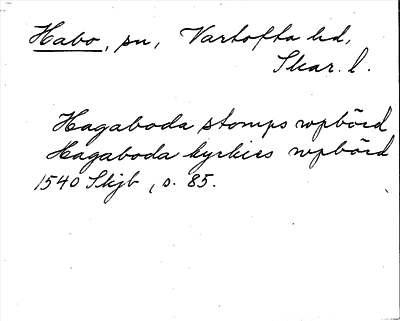 Habo, sn, Vartofta hd,
Skar. l.
Hagaboda stomps wpbörd
Hagaboda kyrkies wpbörd
1540 Skjb, s. 85.